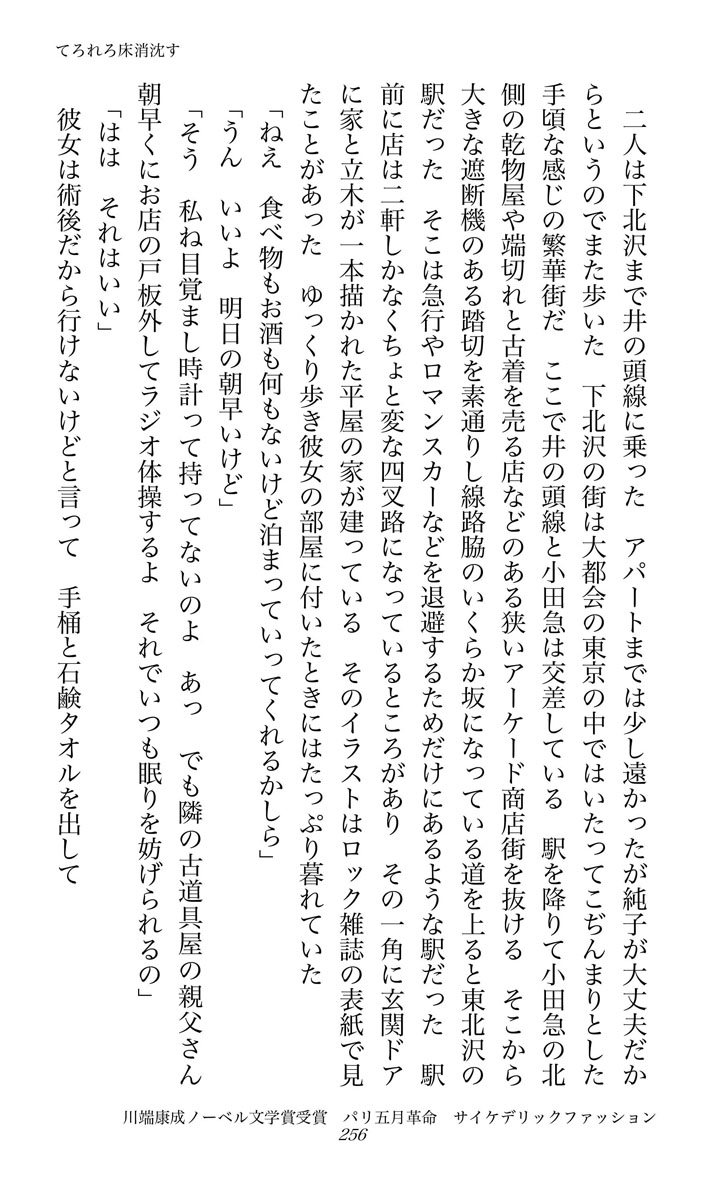 てろれろ床消沈す
二人は下北沢まで井の頭線に乗った　アパートまでは少し遠かったが純子が大丈夫だか
らというのでまた歩いた　下北沢の街は大都会の東京の中ではいたってこぢんまりとした
手頃な感じの繁華街だ　ここで井の頭線と小田急は交差している　駅を降りて小田急の北
側の乾物屋や端切れと古着を売る店などのある狭いアーケード商店街を抜ける　そこから
大きな遮断機のある踏切を素通りし線路脇のいくらか坂になっている道を上ると東北沢の
駅だった　そこは急行やロマンスカーなどを退避するためだけにあるような駅だった　駅
前に店は二軒しかなくちょと変な四叉路になっているところがあり　その一角に玄関ドア
に家と立木が一本描かれた平屋の家が建っている　そのイラストはロック雑誌の表紙で見
たことがあった　ゆっくり歩き彼女の部屋に付いたときにはたっぷり暮れていた
「ねえ　食べ物もお酒も何もないけど泊まっていってくれるかしら」
「うん　いいよ　明日の朝早いけど」
「そう　私ね目覚まし時計って持ってないのよ　あっ　でも隣の古道具屋の親父さん
朝早くにお店の戸板外してラジオ体操するよ　それでいつも眠りを妨げられるの」
「はは　それはいい」
彼女は術後だから行けないけどと言って　手桶と石鹸タオルを出して
川端康成ノーベル文学賞受賞　パリ五月革命　サイケデリックファッション
256